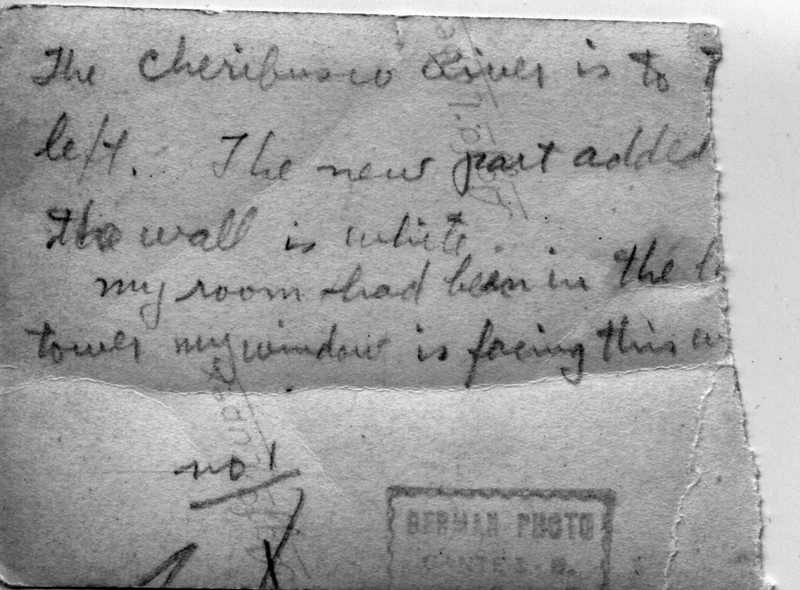 The Cheribusco River is to T
left. The new part added
the wall is white.
my room had been in the l
tower my window is facing this w
no 1
GERMAN PHOTO